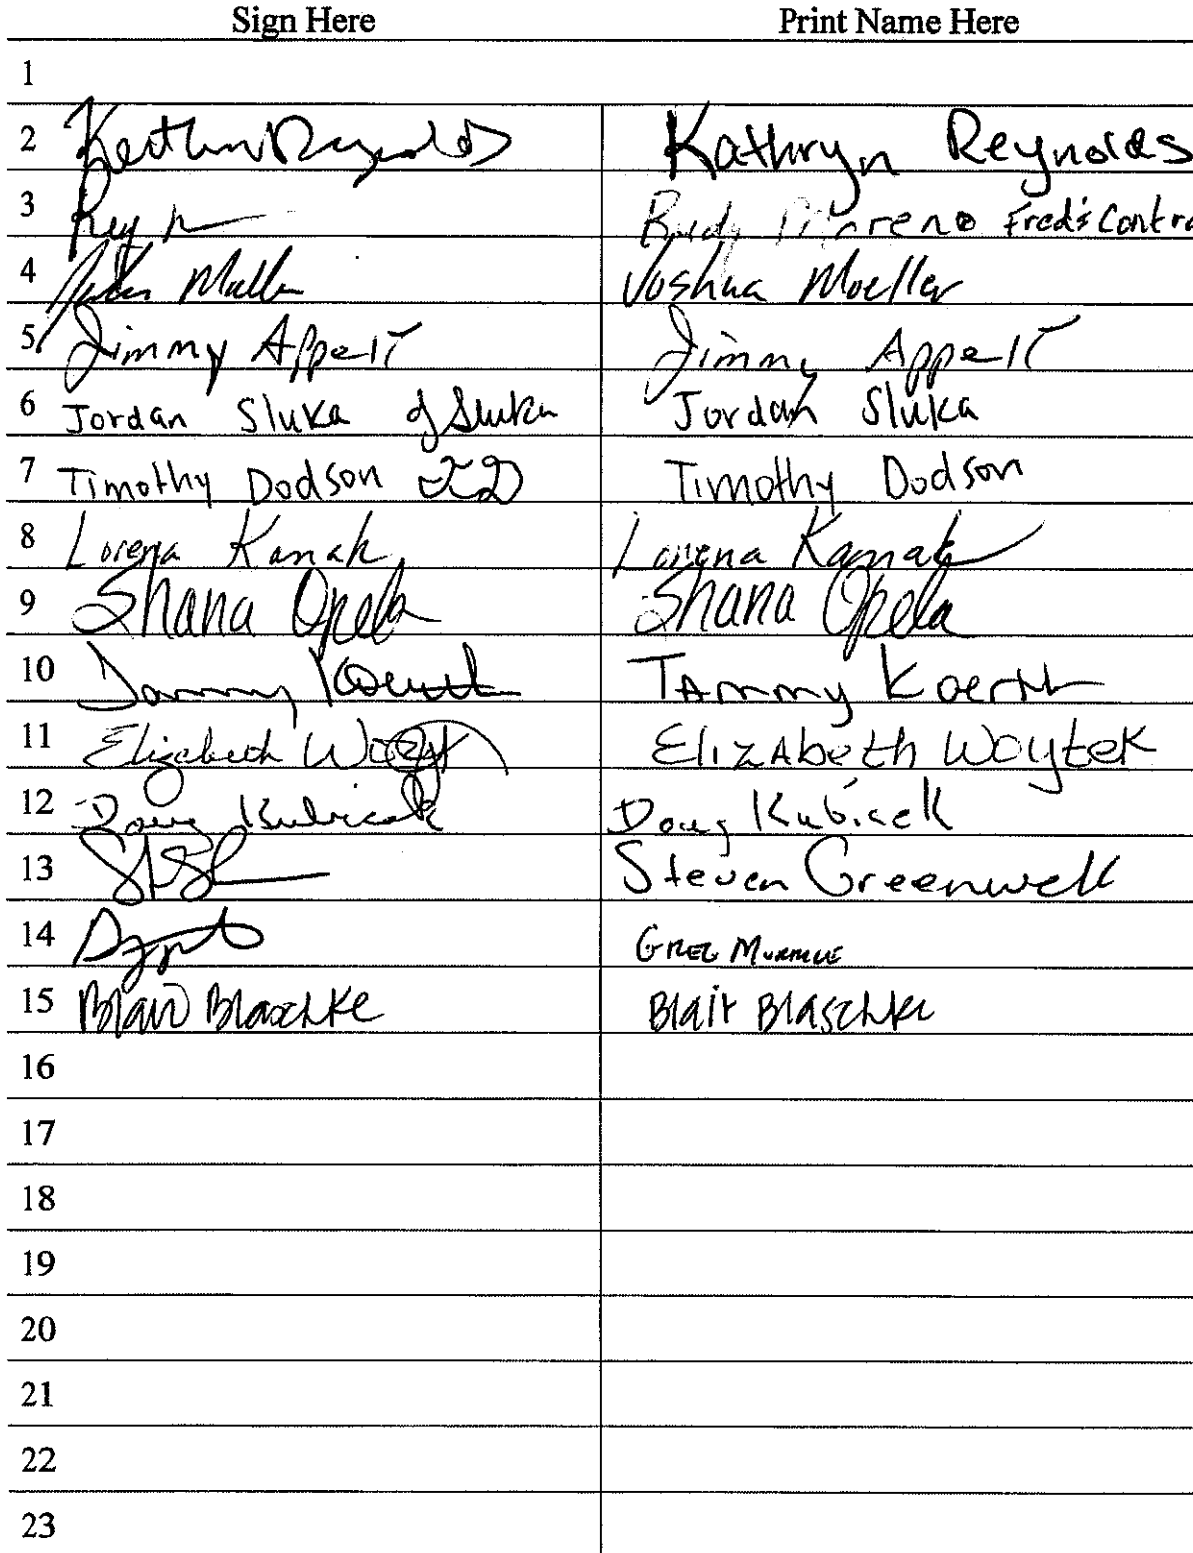 Sign Here Print Name Here
1
2 Kathryn Reynolds Kathryn Reynolds
3 Rudy Moreno Fred's Contra
4 Joshua Moeller
5 Jimmy Appelt Jimmy Appelt
6 Jordan Sluka J Sluka Jordan Sluka
7 Timothy Dodson TD Timothy Dodson
8 Lorena Kanak Lorena Kanak
9 Shana Opela Shana Opela
10 Tammy Koerth TAmmy Koerth
11 Elizabeth Woytek ElizAbeth Woytek
12 Doug Kubicek Doug Kubicek
13 Steven Greenwell
14 GREG
15 Blair Blaschke Blair Blaschke
16
17
18
19
20
21
22
23